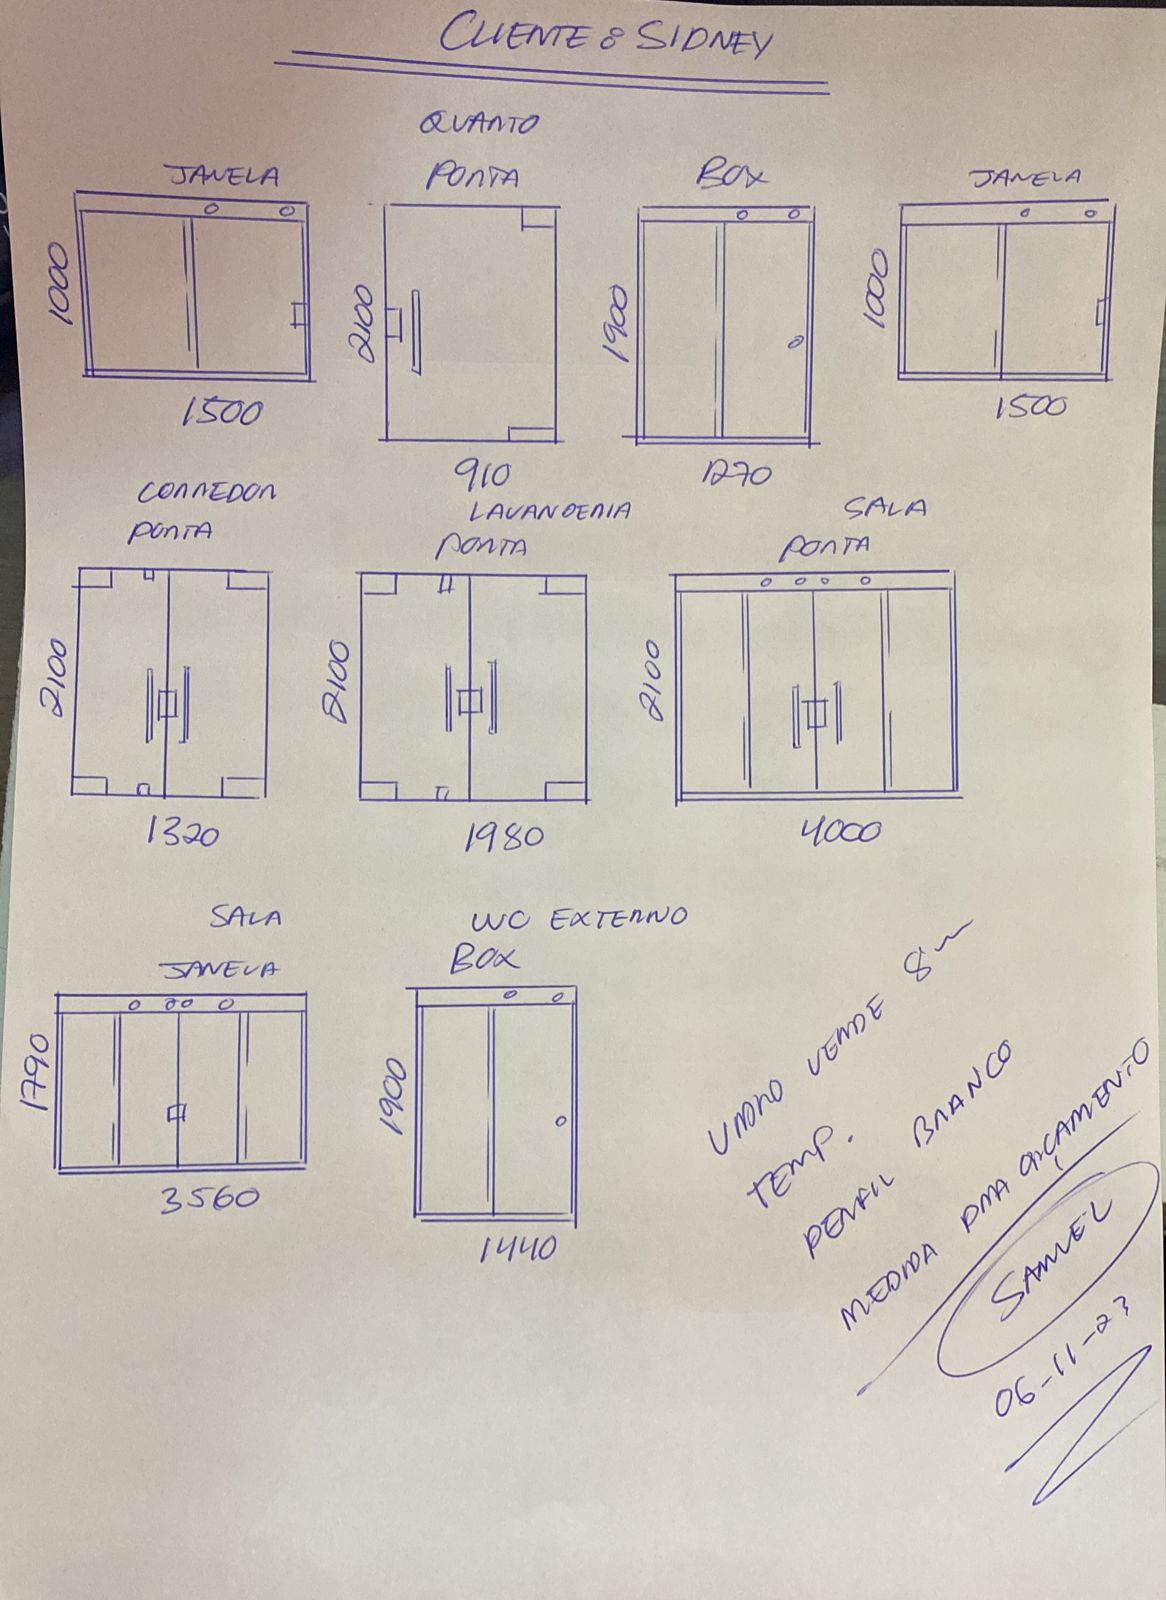 CLIENTE: SIDNEY
QUARTO
JANELA PORTA BOX JANELA
1000 2100 1900 1000
1500 910 1270 1500
CORREDOR LAVANDERIA SALA
PORTA PORTA PORTA
2100 2100 2100
1320 1980 4000
SALA WC EXTERNO
JANELA BOX
1790 1900
3560 1440
VIDRO VERDE 8m
TEMP.
PERFIL BRANCO
MEDIDA PRA ORÇAMENTO
SAMUEL
06-11-23